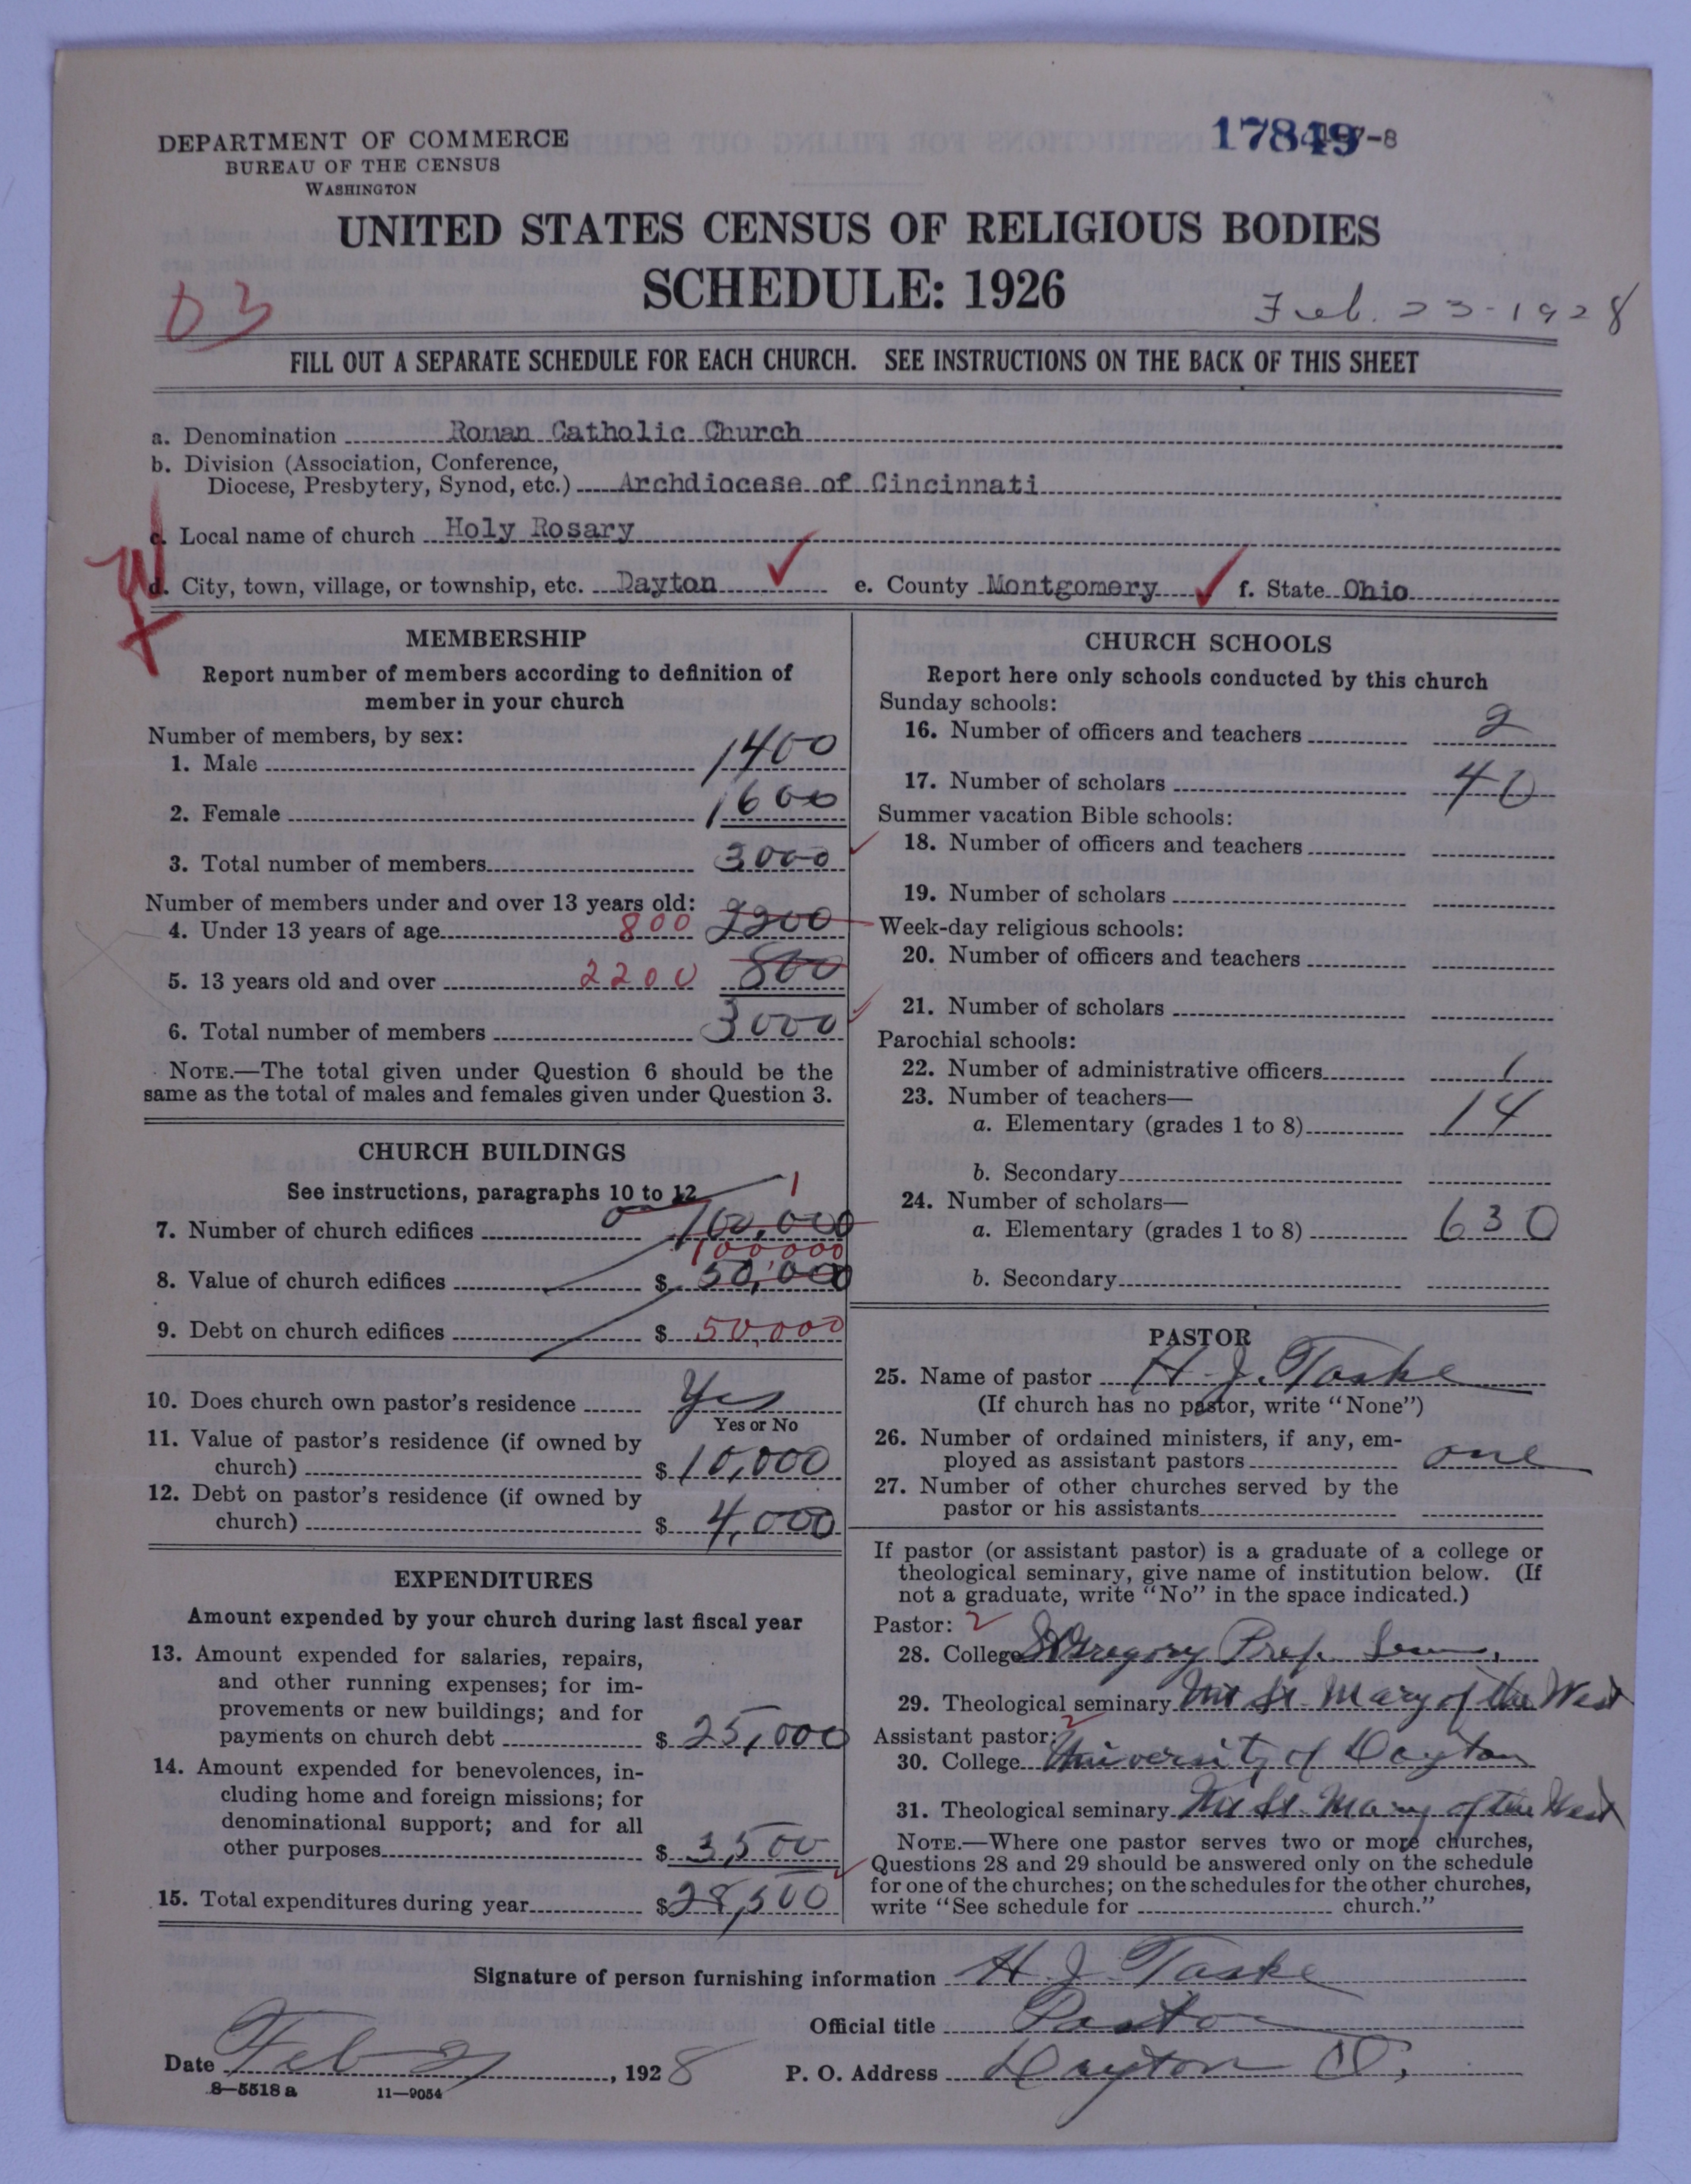 DEPARTMENT OF COMMERCE
BUREAU OF THE CENSUS
WASHINGTON
17849 -8
UNITED STATES CENSUS OF RELIGIOUS BODIES
SCHEDULE: 1926
Feb. 23-1928
03
FILL OUT A SEPARATE SCHEDULE FOR EACH CHURCH. SEE INSTRUCTIONS ON THE BACK OF THIS SHEET
a. Denomination Roman Catholic Church
b. Division (Association, Conference,
Diocese, Presbytery, Synod, etc.) Archdiocese of Cincinnati
c. Local name of church Holy Rosary
d. City, town, village, or township, etc. Dayton e. County Montgomery f. State Ohio
MEMBERSHIP
Report number of members according to definition of
member in your church
Number of members, by sex:
1. Male 1400
2. Female 1600
3. Total number of members 3000
Number of members under and over 13 years old:
4. Under 13 years of age 800 2200
5. 13 years old and over 2200 800
6. Total number of members 3000
NOTE.—The total given under Question 6 should be the
same as the total of males and females given under Question 3.
CHURCH BUILDINGS
See instructions, paragraphs 10 to 12
7. Number of church edifices 1 100,000
8. Value of church edifices $ 100000 50,000
9. Debt on church edifices $ 50,000
10. Does church own pastor's residence Yes
Yes or No
11. Value of pastor's residence (if owned by
church) $ 10,000
12. Debt on pastor's residence (if owned by
church) $ 4,000
EXPENDITURES
Amount expended by your church during last fiscal year
13. Amount expended for salaries, repairs,
and other running expenses; for im-
provements or new buildings; and for
payments on church debt $ 25,000
14. Amount expended for benevolences, in-
cluding home and foreign missions; for
denominational support; and for all
other purposes $ 3,500
15. Total expenditures during year $ 28,500
CHURCH SCHOOLS
Report here only schools conducted by this church
Sunday schools:
16. Number of officers and teachers 2
17. Number of scholars 40
Summer vacation Bible schools:
18. Number of officers and teachers
19. Number of scholars
Week-day religious schools:
20. Number of officers and teachers
21. Number of scholars
Parochial schools:
22. Number of administrative officers 1
23. Number of teachers—
a. Elementary (grades 1 to 8) 14
b. Secondary
24. Number of scholars—
a. Elementary (grades 1 to 8) 630
b. Secondary
PASTOR
25. Name of pastor H. J. Taske
(If church has no pastor, write "None")
26. Number of ordained ministers, if any, em-
ployed as assistant pastors one
27. Number of other churches served by the
pastor or his assistants
If pastor (or assistant pastor) is a graduate of a college or
theological seminary, give name of institution below. (If
not a graduate, write "No" in the space indicated.)
Pastor: 2
28. College St Gregory Prep. Sem.
29. Theological seminary Mt St. Mary of the West
Assistant pastor: 2
30. College University of Dayton
31. Theological seminary Mt St. Mary of the West
NOTE.—Where one pastor serves two or more churches,
Questions 28 and 29 should be answered only on the schedule
for one of the churches; on the schedules for the other churches,
write "See schedule for church."
Signature of person furnishing information H. J. Taske
Official title Pastor
Date Feb 21, 1928 P. O. Address Dayton O.
8—5518 a 11—9054